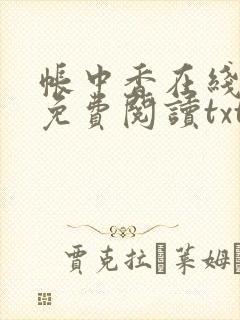 帐中香在线
免費閱讀txt
賈克拉 萊姆